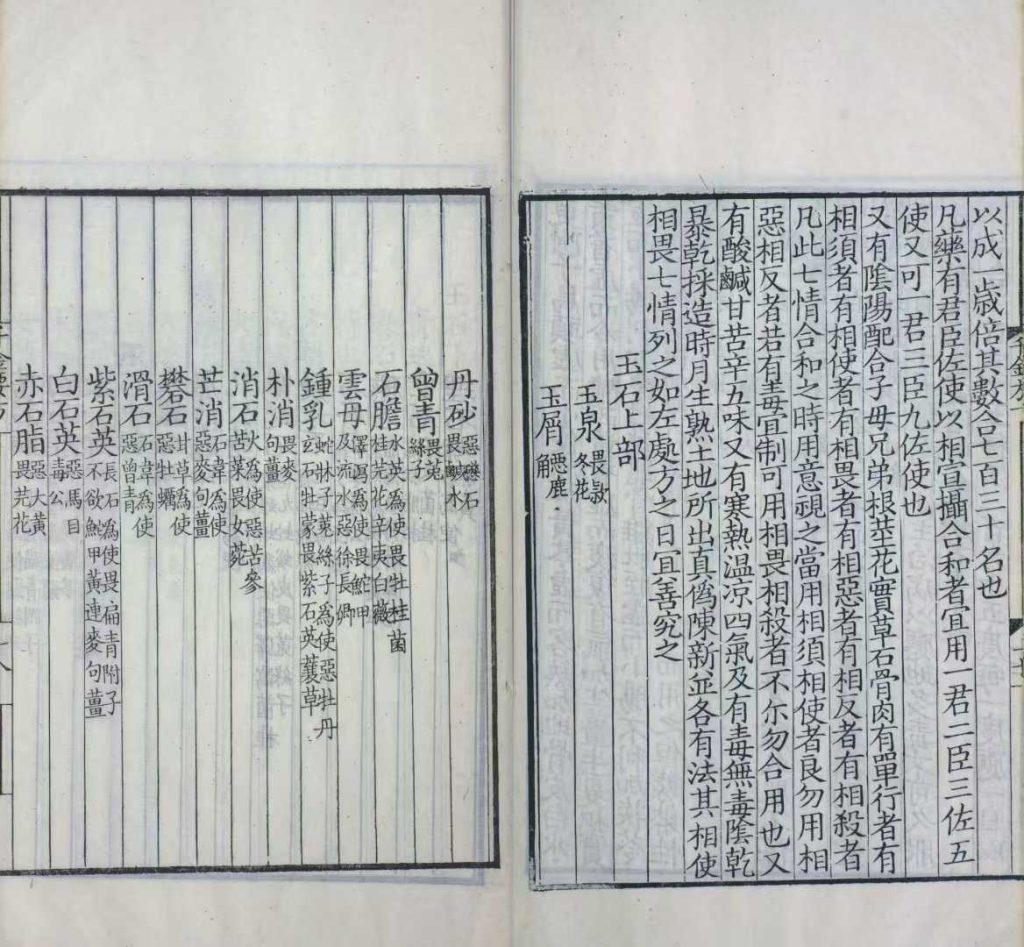 以成一歲倍其數合七百三十名也
凡藥有君臣佐使以相宣攝合和者宜用一君二臣三佐五
使又可一君三臣九佐使也
又有陰陽配合子母兄弟根莖花實草石骨肉有單行者有
相須者有相使者有相畏者有相惡者有相反者有相殺者
凡此七情合和之時用意視之當用相須相使者良勿用相
惡相反者若有毒宜制可用相畏相殺者不尓勿合用也又
有酸鹹甘苦辛五味又有寒熱温涼四氣及有毒無毒陰乾
暴乾採造時月生熟土地所出真僞陳新並各有法其相使
相畏七情列之如左處方之日宜善究之
玉石上部
玉泉畏款冬花
玉屑惡鹿觮
丹砂惡磁石畏鹹水
曾青畏菟絲子
石膽水英為使畏牡桂菌桂芫花辛夷白薇
雲母澤瀉為使畏鮀甲及流水惡徐長卿
鍾乳蛇牀子菟絲子為使惡牡丹玄石牡蒙畏紫石英蘘草
朴消畏麥句薑
消石火為使惡苦參苦菜畏女菀
芒消石韋為使惡麥句薑
礬石甘草為使惡牡蠣
滑石石韋為使惡曾青
紫石英長石為使畏扁青附子不欲鮀甲黃連麥句薑
白石英惡馬目毒公
赤石脂惡大黃畏芫花